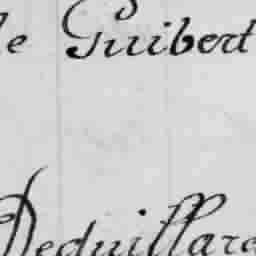 de Guibert
Deduillard